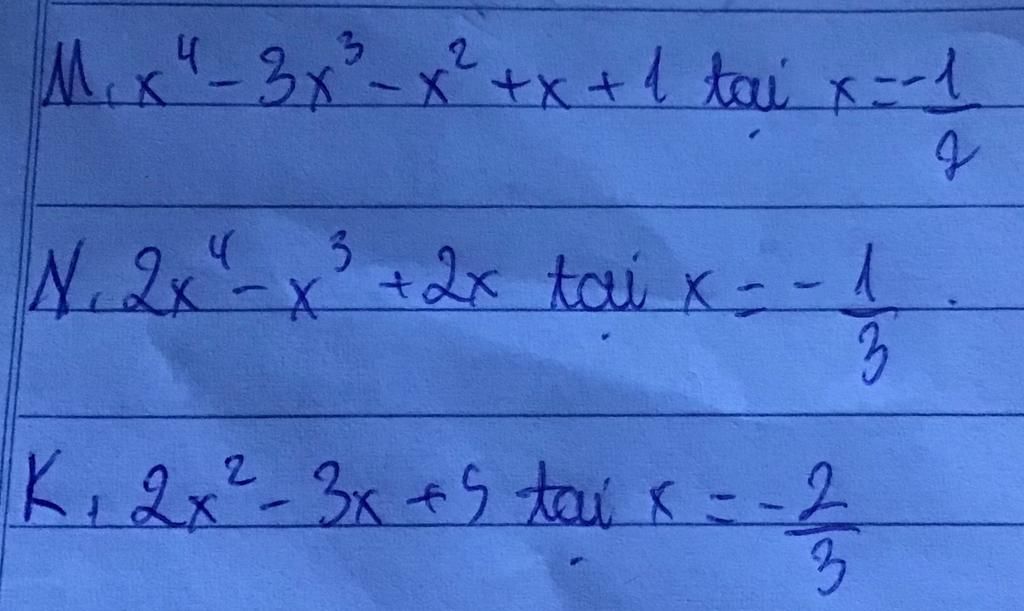 M, x⁴ - 3x³ - x² + x + 1 tại x = -1/2
N, 2x⁴ - x³ + 2x tại x = -1/3.
K, 2x² - 3x + 5 tại x = -2/3